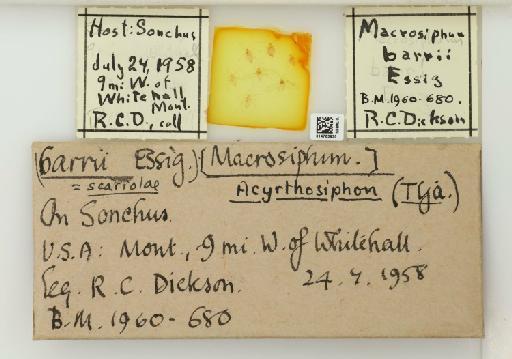 Host: Sonchus
July 24, 1958
9 mi W. of
Whitehall
Mont.
R.C.D., coll
Macrosiphum
barrii
Essig
B.M. 1960-680.
R.C. Dickson
(barrii Essig.) [Macrosiphum.]
= scariolae
Acyrthosiphon (TGa.)
On Sonchus.
U.S.A: Mont., 9 mi. W. of Whitehall.
leg. R. C. Dickson. 24. 7. 1958
B.M. 1960-680